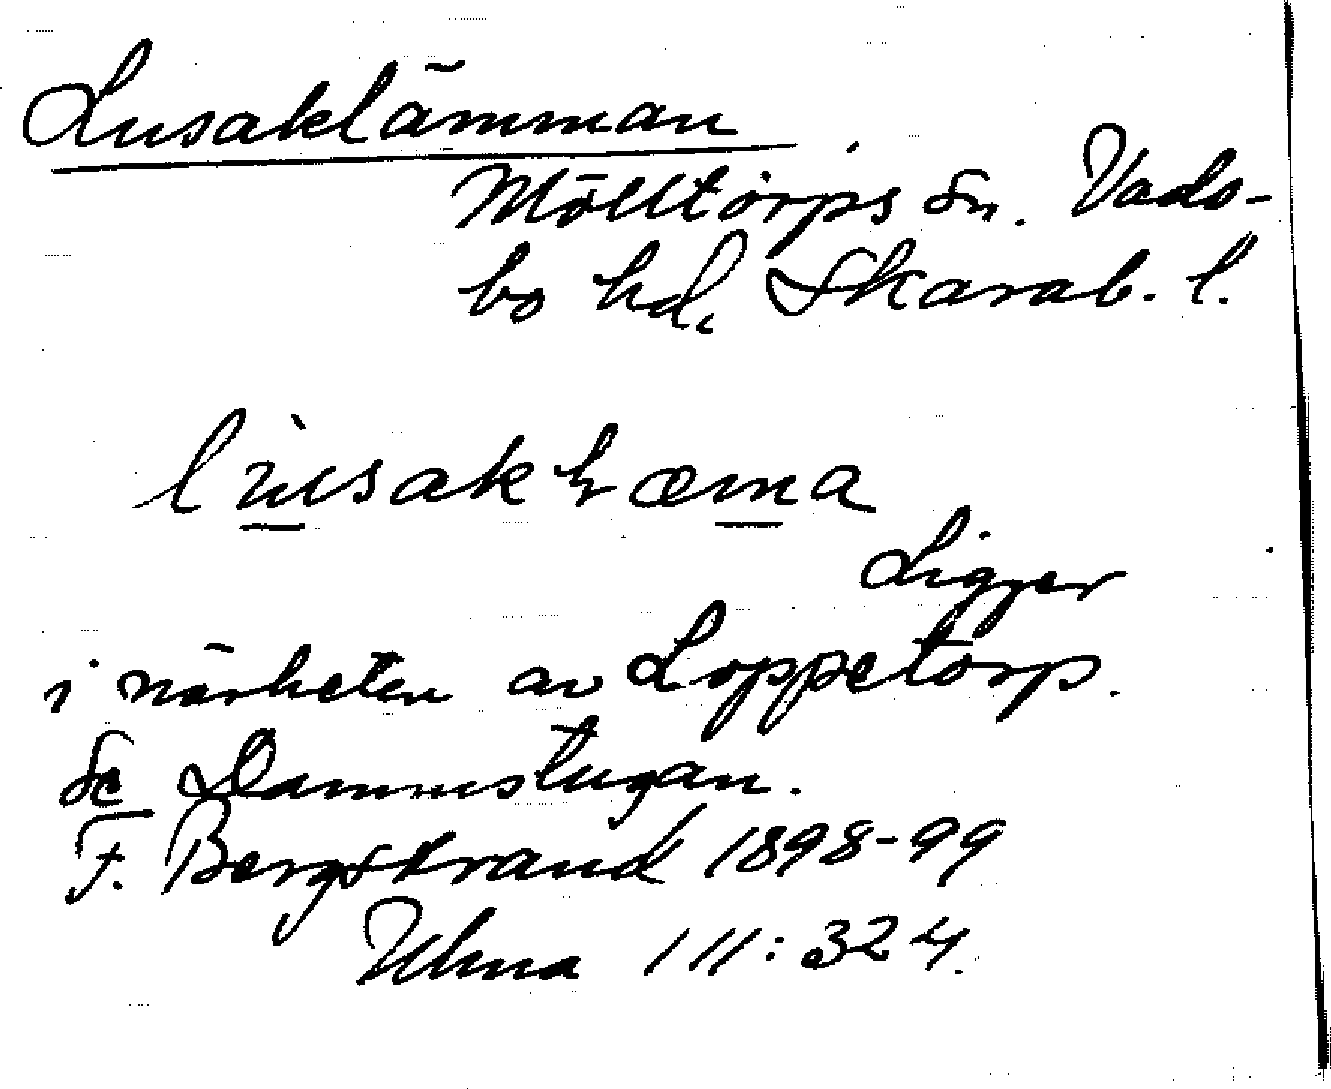 Lusaklämman
Mölltorps sn. Vads-
bo hd, Skarab. l.
lùsakḷæma
Ligger
i närheten av Loppetorp.
Se Dammstugan.
F. Bergstrand 1898-99
Ulma 111:324.